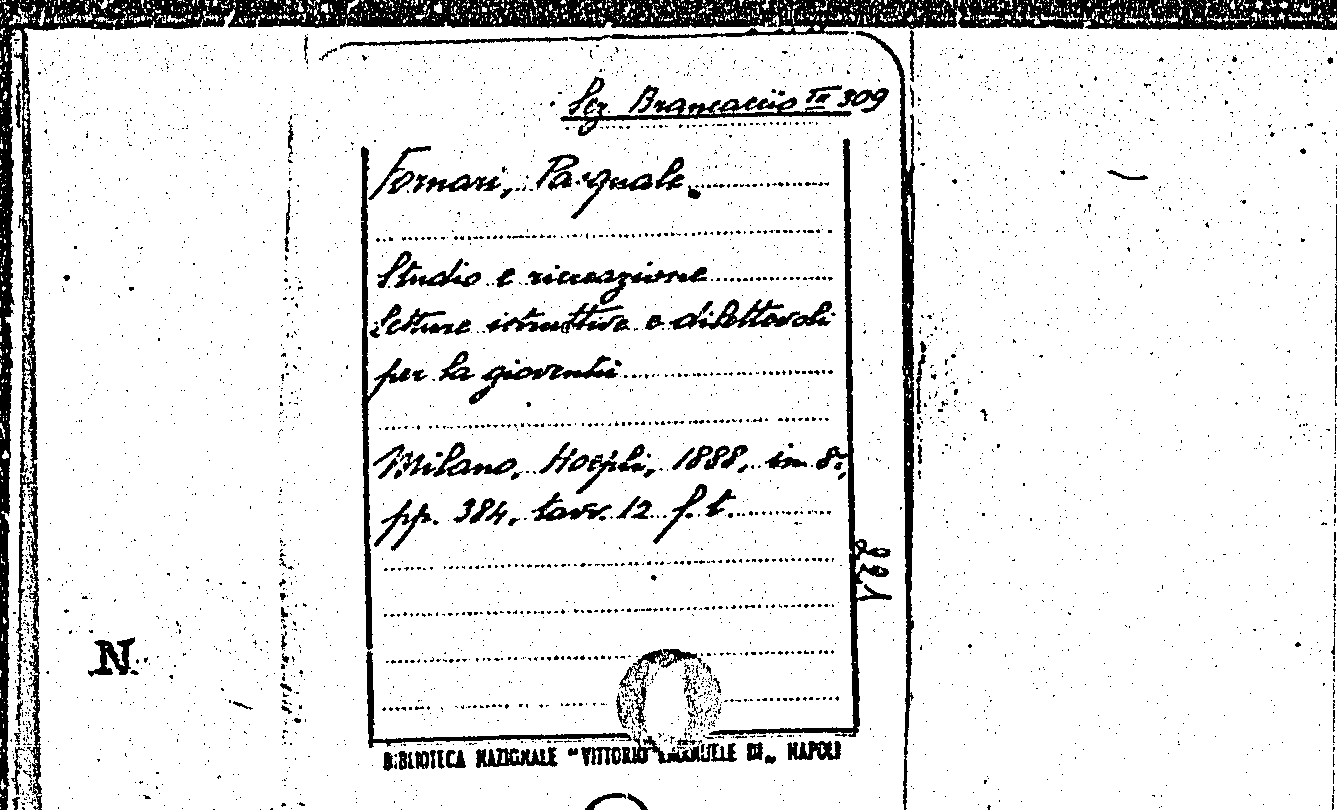 Sez Brancaccio III 309
Fornari, Pasquale.
Studio e ricreazione
Letture istruttive e dilettevoli
per la gioventù
Milano, Hoepli, 1888, in 8°,
pp. 384, tavv. 12 f. t.
N
BIBLIOTECA NAZIONALE "VITTORIO EMANUELE III„ NAPOLI